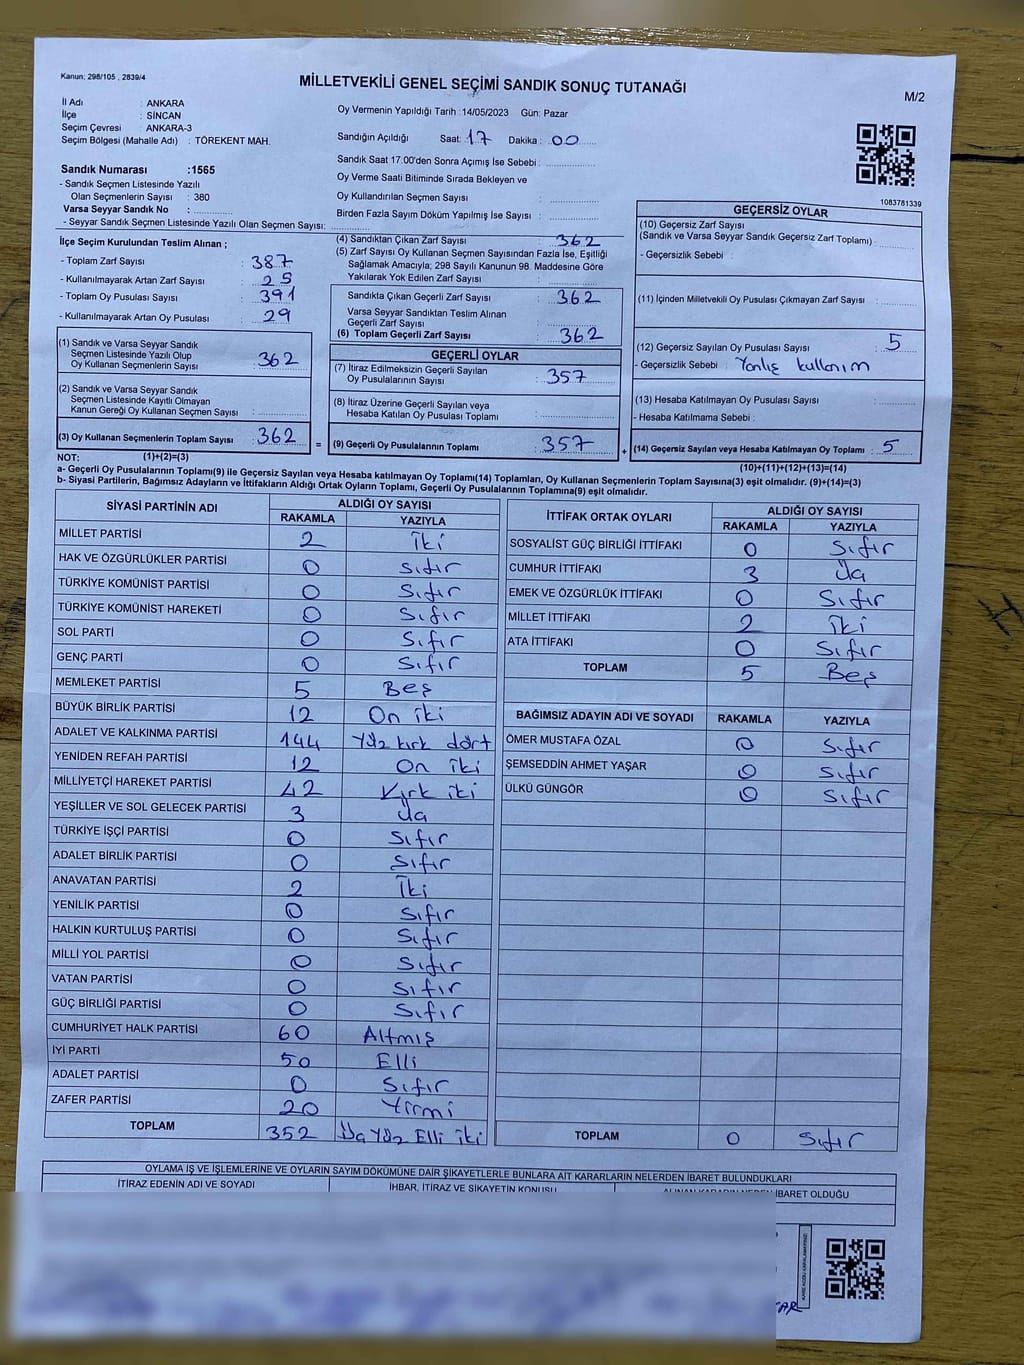 Kanun: 298/105 , 2839/4
MİLLETVEKİLİ GENEL SEÇİMİ SANDIK SONUÇ TUTANAĞI
M/2
İl Adı : ANKARA
İlçe : SİNCAN
Seçim Çevresi : ANKARA-3
Seçim Bölgesi (Mahalle Adı) : TÖREKENT MAH.
Oy Vermenin Yapıldığı Tarih : 14/05/2023 Gün: Pazar
Sandığın Açıldığı Saat: 17 Dakika : 00
Sandık Saat 17:00'den Sonra Açımış İse Sebebi :
Oy Verme Saati Bitiminde Sırada Bekleyen ve
Oy Kullandırılan Seçmen Sayısı :
Birden Fazla Sayım Döküm Yapılmış İse Sayısı :
Sandık Numarası :1565
- Sandık Seçmen Listesinde Yazılı
Olan Seçmenlerin Sayısı : 380
Varsa Seyyar Sandık No :
- Seyyar Sandık Seçmen Listesinde Yazılı Olan Seçmen Sayısı:
1083781339
İlçe Seçim Kurulundan Teslim Alınan ;
- Toplam Zarf Sayısı : 387
- Kullanılmayarak Artan Zarf Sayısı : 25
- Toplam Oy Pusulası Sayısı : 391
- Kullanılmayarak Artan Oy Pusulası : 29
(1) Sandık ve Varsa Seyyar Sandık
Seçmen Listesinde Yazılı Olup
Oy Kullanan Seçmenlerin Sayısı : 362
(2) Sandık ve Varsa Seyyar Sandık
Seçmen Listesinde Kayıtlı Olmayan
Kanun Gereği Oy Kullanan Seçmen Sayısı :
(3) Oy Kullanan Seçmenlerin Toplam Sayısı : 362
(4) Sandıktan Çıkan Zarf Sayısı : 362
(5) Zarf Sayısı Oy Kullanan Seçmen Sayısından Fazla İse, Eşitliği
Sağlamak Amacıyla; 298 Sayılı Kanunun 98. Maddesine Göre
Yakılarak Yok Edilen Zarf Sayısı :
Sandıkta Çıkan Geçerli Zarf Sayısı : 362
Varsa Seyyar Sandıktan Teslim Alınan
Geçerli Zarf Sayısı :
(6) Toplam Geçerli Zarf Sayısı : 362
GEÇERLİ OYLAR
(7) İtiraz Edilmeksizin Geçerli Sayılan
Oy Pusulalarının Sayısı : 357
(8) İtiraz Üzerine Geçerli Sayılan veya
Hesaba Katılan Oy Pusulası Toplamı :
= (9) Geçerli Oy Pusulalarının Toplamı : 357
GEÇERSİZ OYLAR
(10) Geçersiz Zarf Sayısı
(Sandık ve Varsa Seyyar Sandık Geçersiz Zarf Toplamı) :
- Geçersizlik Sebebi :
(11) İçinden Milletvekili Oy Pusulası Çıkmayan Zarf Sayısı :
(12) Geçersiz Sayılan Oy Pusulası Sayısı : 5
- Geçersizlik Sebebi : Yanlış kullanım
(13) Hesaba Katılmayan Oy Pusulası Sayısı :
- Hesaba Katılmama Sebebi :
+ (14) Geçersiz Sayılan veya Hesaba Katılmayan Oy Toplamı : 5
NOT: (1)+(2)=(3)
(10)+(11)+(12)+(13)=(14)
a- Geçerli Oy Pusulalarının Toplamı(9) ile Geçersiz Sayılan veya Hesaba katılmayan Oy Toplamı(14) Toplamları, Oy Kullanan Seçmenlerin Toplam Sayısına(3) eşit olmalıdır. (9)+(14)=(3)
b- Siyasi Partilerin, Bağımsız Adayların ve İttifakların Aldığı Ortak Oyların Toplamı, Geçerli Oy Pusulalarının Toplamına(9) eşit olmalıdır.
SİYASİ PARTİNİN ADI ALDIĞI OY SAYISI
RAKAMLA YAZIYLA
MİLLET PARTİSİ 2 İki
HAK VE ÖZGÜRLÜKLER PARTİSİ 0 Sıfır
TÜRKİYE KOMÜNİST PARTİSİ 0 Sıfır
TÜRKİYE KOMÜNİST HAREKETİ 0 Sıfır
SOL PARTİ 0 Sıfır
GENÇ PARTİ 0 Sıfır
MEMLEKET PARTİSİ 5 Beş
BÜYÜK BİRLİK PARTİSİ 12 On iki
ADALET VE KALKINMA PARTİSİ 144 Yüz kırk dört
YENİDEN REFAH PARTİSİ 12 On iki
MİLLİYETÇİ HAREKET PARTİSİ 42 Kırk iki
YEŞİLLER VE SOL GELECEK PARTİSİ 3 Üç
TÜRKİYE İŞÇİ PARTİSİ 0 Sıfır
ADALET BİRLİK PARTİSİ 0 Sıfır
ANAVATAN PARTİSİ 2 İki
YENİLİK PARTİSİ 0 Sıfır
HALKIN KURTULUŞ PARTİSİ 0 Sıfır
MİLLİ YOL PARTİSİ 0 Sıfır
VATAN PARTİSİ 0 Sıfır
GÜÇ BİRLİĞİ PARTİSİ 0 Sıfır
CUMHURİYET HALK PARTİSİ 60 Altmış
İYİ PARTİ 50 Elli
ADALET PARTİSİ 0 Sıfır
ZAFER PARTİSİ 20 Yirmi
TOPLAM 352 Üç Yüz Elli iki
İTTİFAK ORTAK OYLARI ALDIĞI OY SAYISI
RAKAMLA YAZIYLA
SOSYALİST GÜÇ BİRLİĞİ İTTİFAKI 0 Sıfır
CUMHUR İTTİFAKI 3 Üç
EMEK VE ÖZGÜRLÜK İTTİFAKI 0 Sıfır
MİLLET İTTİFAKI 2 İki
ATA İTTİFAKI 0 Sıfır
TOPLAM 5 Beş
BAĞIMSIZ ADAYIN ADI VE SOYADI RAKAMLA YAZIYLA
ÖMER MUSTAFA ÖZAL 0 Sıfır
ŞEMSEDDİN AHMET YAŞAR 0 Sıfır
ÜLKÜ GÜNGÖR 0 Sıfır
TOPLAM 0 Sıfır
OYLAMA İŞ VE İŞLEMLERİNE VE OYLARIN SAYIM DÖKÜMÜNE DAİR ŞİKAYETLERLE BUNLARA AİT KARARLARIN NELERDEN İBARET BULUNDUKLARI
İTİRAZ EDENİN ADI VE SOYADI
İHBAR, İTİRAZ VE ŞİKAYETİN KONUSU
ALINAN KARARIN NEDEN İBARET OLDUĞU